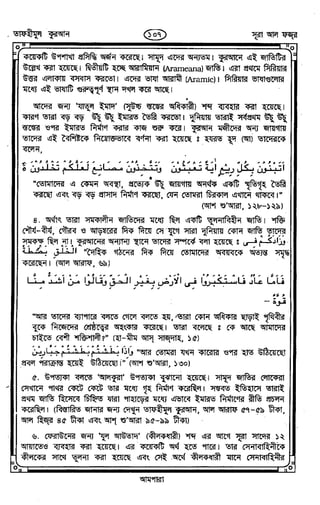 তাফহীমুল কুরআন
১০৭
সূরা আল ফজর
কয়েকটি উপশাখা প্রসিদ্ধি অর্জন করেছে। সামূদ এদের অন্যতম। কুরআনে এই জাতিটির
উল্লেখ করা হয়েছে। দ্বিতীয়টি হচ্ছে আরামিয়ান (Arameana) জাতি। এরা প্রথমে সিরিয়ার
উত্তর এলাকায় বসবাস করতো। এদের ভাষা আরামী (Aramic)। সিরিয়ার ভাষাগুলোর
মধ্যে এই ভাষাটি গুরুত্বপূর্ণ স্থান দখল করে আছে।
আদের জন্য 'যাতুল ইমাদ' (সুউচ্চ স্তম্ভের অধিকারী) শব্দ ব্যবহার করা হয়েছে।
কারণ তারা বড় বড় উঁচু উঁচু ইমারত তৈরি করতো। দুনিয়ায় তারাই সর্বপ্রথম উঁচু উঁচু
স্তম্ভের ওপর ইমারত নির্মাণ করার কাজ শুরু করে। কুরআন মজীদের অন্য জায়গায়
তাদের এই বৈশিষ্টকে নিম্নোক্তভাবে বর্ণনা করা হয়েছে : হযরত হূদ (আ) তাদেরকে
বলেন,
أَتَبْنُونَ بِكُلِّ رِيعٍ أَيَةً تَعْبَثُونَ ۝ وَتَتَّخِذُونَ مَصَانِعَ لَعَلَّكُمْ تَخْلُدُونَ ۝
"তোমাদের এ কেমন অবস্থা, প্রত্যেক উঁচু জায়গায় অনর্থক একটি স্মৃতিগৃহ তৈরি
করছো এবং বড় বড় প্রাসাদ নির্মাণ করছো, যেন তোমরা চিরকাল এখানে থাকবে।"
(আশ শু'আরা, ১২৮-১২৯)
৪. অর্থাৎ তারা সমকালীন জাতিদের মধ্যে ছিল একটি তুলনাবিহীন জাতি। শক্তি
শৌর্য-বীর্য, গৌরব ও আড়ম্বরের দিক দিয়ে সে যুগে সারা দুনিয়ায় কোন জাতি তাদের
সমকক্ষ ছিল না। কুরআনের অন্যান্য স্থানে তাদের সম্পর্কে বলা হয়েছে : وَزَادَكُمْ فِي
الْخَلْقِ بَصْطَةً "দৈহিক গঠনের দিক দিয়ে তোমাদের অবয়বকে অত্যন্ত সমৃদ্ধ
করেছেন। (আল আরাফ, ৬৯)
فَأَمَّا عَادٌ فَاسْتَكْبَرُوا فِي الْأَرْضِ بِغَيْرِ الْحَقِّ وَقَالُوا مَنْ أَشَدُّ مِنَّا
قُوَّةً -
"আর তাদের ব্যাপারে বলতে গেলে বলতে হয়, তারা কোন অধিকার ছাড়াই পৃথিবীর
বুকে নিজেদের শ্রেষ্ঠত্বের অহংকার করেছে। তারা বলেছে : কে আছে আমাদের
চাইতে বেশী শক্তিশালী?" (হা-মীম আস্ সাজদাহ, ১৫)
وَإِذَا بَطَشْتُمْ بَطَشْتُمْ جَبَّارِينَ "আর তোমরা যখন কারোর ওপর হাত উঠিয়েছো
প্রবল পরাক্রান্ত হয়েই উঠিয়েছো।" (আশ শু'আরা, ১৩০)
৫. উপত্যকা বলতে 'আলকুরা' উপত্যকা বুঝানো হয়েছে। সামূদ জাতির লোকেরা
সেখানে পাথর কেটে কেটে তার মধ্যে গৃহ নির্মাণ করেছিল। সম্ভবত ইতিহাসে তারাই
প্রথম জাতি হিসেবে চিহ্নিত যারা পাহাড়ের মধ্যে এভাবে ইমারত নির্মাণের রীতি প্রচলন
করেছিল। (বিস্তারিত জানার জন্য দেখুন তাফহীমুল কুরআন, আল আরাফ ৫৭-৫৯ টীকা,
আল হিজর ৪৫ টীকা এবং আশ্ শু'আরা ৯৫-৯৯ টীকা)
৬. ফেরাউনের জন্য 'যুল আউতাদ' (কীলকধারী) শব্দ এর আগে সূরা সাদের ১২
আয়াতেও ব্যবহার করা হয়েছে। এর কয়েকটি অর্থ হতে পারে। তার সেনাবাহিনীকে
কীলকের সাথে তুলনা করা হয়েছে এবং সেই অর্থে কীলকধারী মানে সেনাবাহিনীর
আমপারা